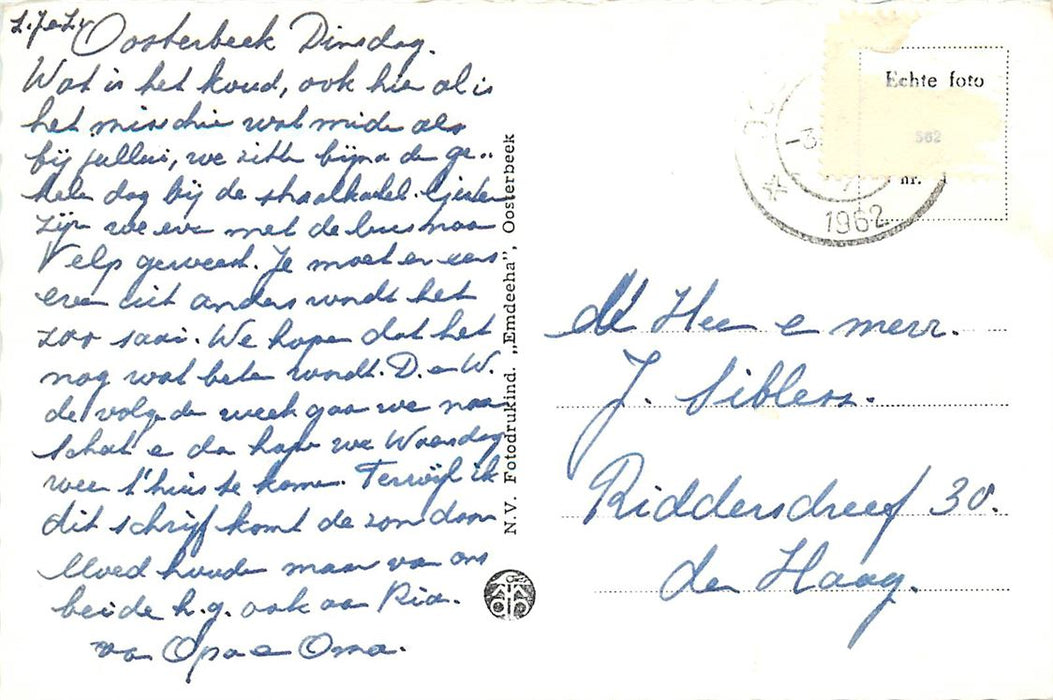 L. J e L.
Oosterbeek Dinsdag.
Wat is het koud, ook hier al is
het misschie wat minde als
bij jullui, we zitte bijna de ge..
hele dag bij de straalkachel. Gister
zijn we eve met de bus naa
Velp geweest. Je moet er eens
eve uit anders wordt het
zoo saai. We hope dat het
nog wat beter wordt. D. e W.
de volge de week gaa we naa
Schat e da hope we Woensdag
weer t'huis te kome. Terwijl ik
dit schrijf komt de zon doo
Moed houde maar va ons
beide h.g. ook aa Ria.
va Opa e Oma.
N.V. Fotodrukind. „Emdeeha”, Oosterbeek
Echte foto
562
nr.
-3
1962
d Heer e mevr.
J. Siblesz.
Riddersdreef 30.
den Haag.